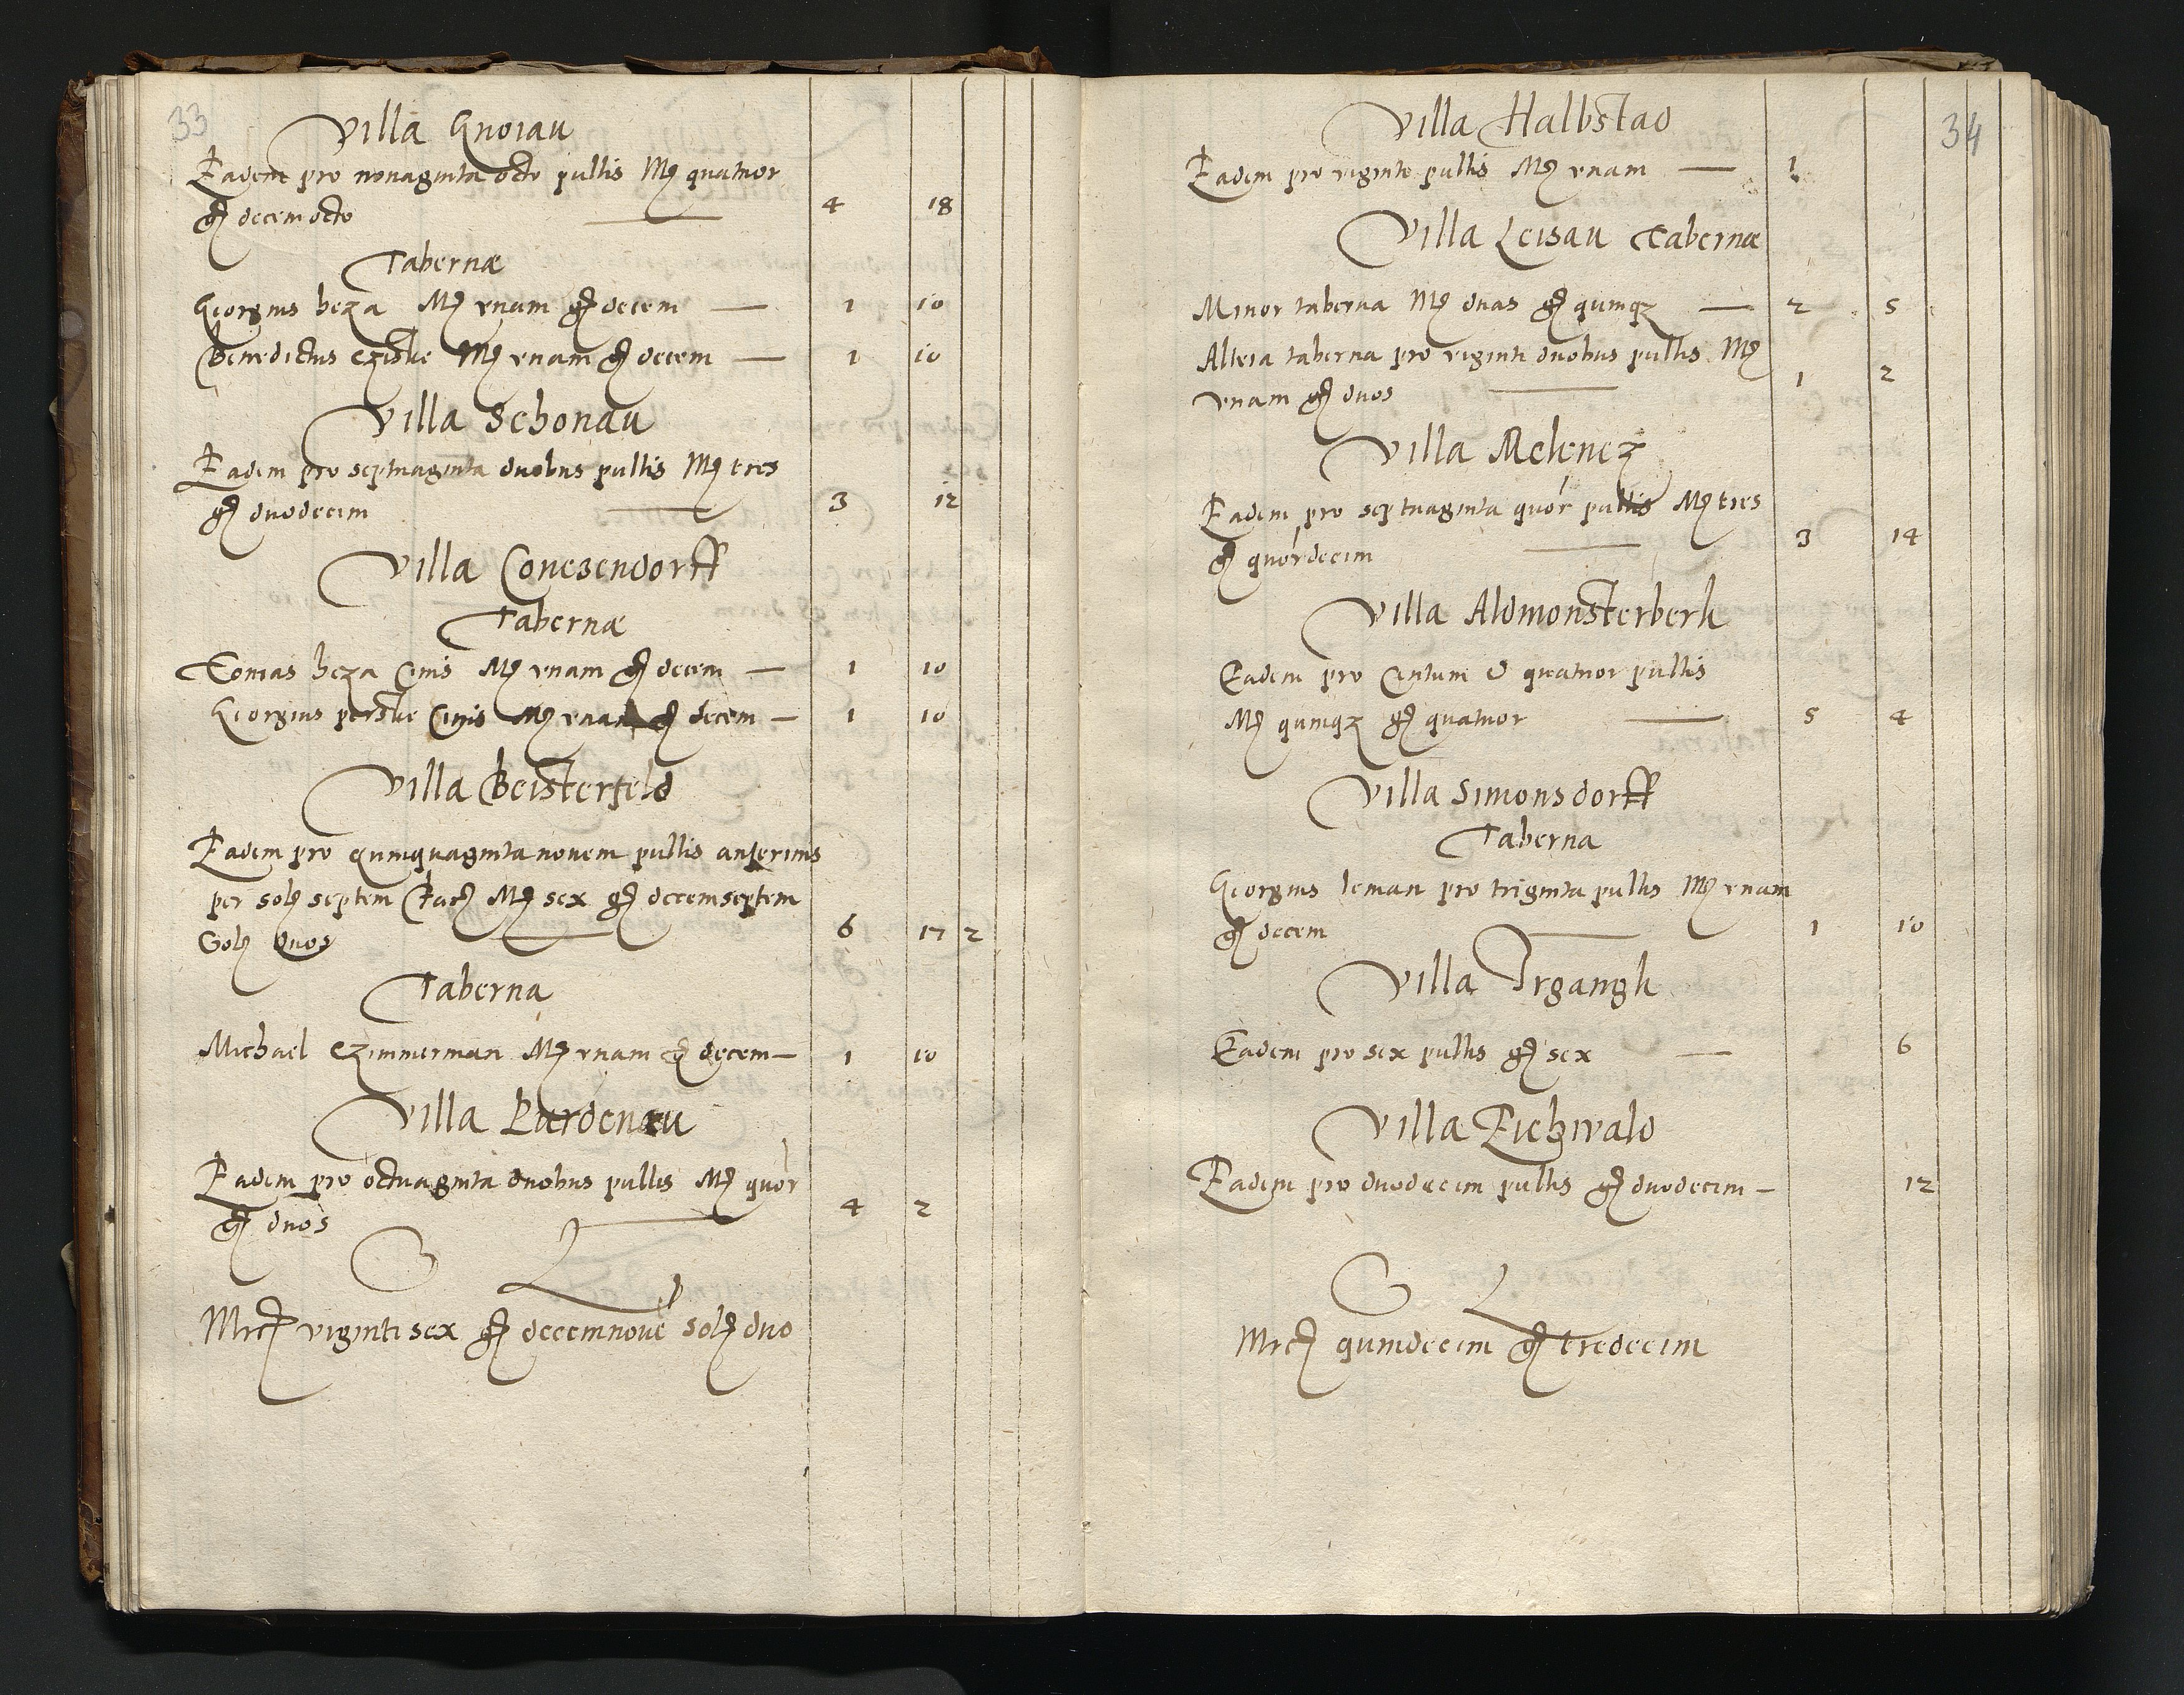 33
Villa Gnoiau
Eadem pro nonaginta octo pullis Mꝛ quatuor
gꝛ decemocto — 4 18
Tabernæ
Georgius heza Mꝛ vnam gꝛ decem — 1 10
Benedictus czische Mꝛ vnam gꝛ decem — 1 10
Villa Schonau
Eadem pro septuaginta duobus pullis Mꝛ tres
gꝛ duodecim — 3 12
Villa Conezendorff
Tabernæ
Tomas heza Mꝛ vnam gꝛ decem — 1 10
Georgius Mꝛ vnam gꝛ decem — 1 10
Villa Beisterfeld
Eadem pro quinquaginta novem pullis anserinis
per solꝭ septem Mꝛ sex gꝛ decemseptem
Solꝭ duos — 6 17 2
Taberna
Michael Czimmerman Mꝛ vnam gꝛ decem — 1 10
Villa Pardenau
Eadem pro octuaginta duobus pullis Mꝛ quor
gꝛ duos — 4 2
Mrcꝭ viginti sex gꝛ decemnovē solꝭ duo
34
Villa Halbstad
Eadem pro viginti pullis Mꝛ vnam — 1
Villa Leisau Tabernæ
Minor taberna Mꝛ duas gꝛ quinqꝫ — 2 5
Altera taberna pro viginti duobus pullis Mꝛ
vnam gꝛ duos — 1 2
Villa Melenez
Eadem pro septuaginta quor pullis Mꝛ tres
gꝛ quordecim — 3 14
Villa Aldmonsterberk
Eadem pro Centum & quatuor pullis
Mꝛ quinqꝫ gꝛ quatuor — 5 4
Villa Simonsdorff
Taberna
Georgius leman pro triginta pullis Mꝛ vnam
gꝛ decem — 1 10
Villa Irgangk
Eadem pro sex pullis gꝛ sex — 6
Villa Eichwald
Eadem pro duodecim pullis gꝛ duodecim — 12
Mrcꝭ quindecim gꝛ tredecim